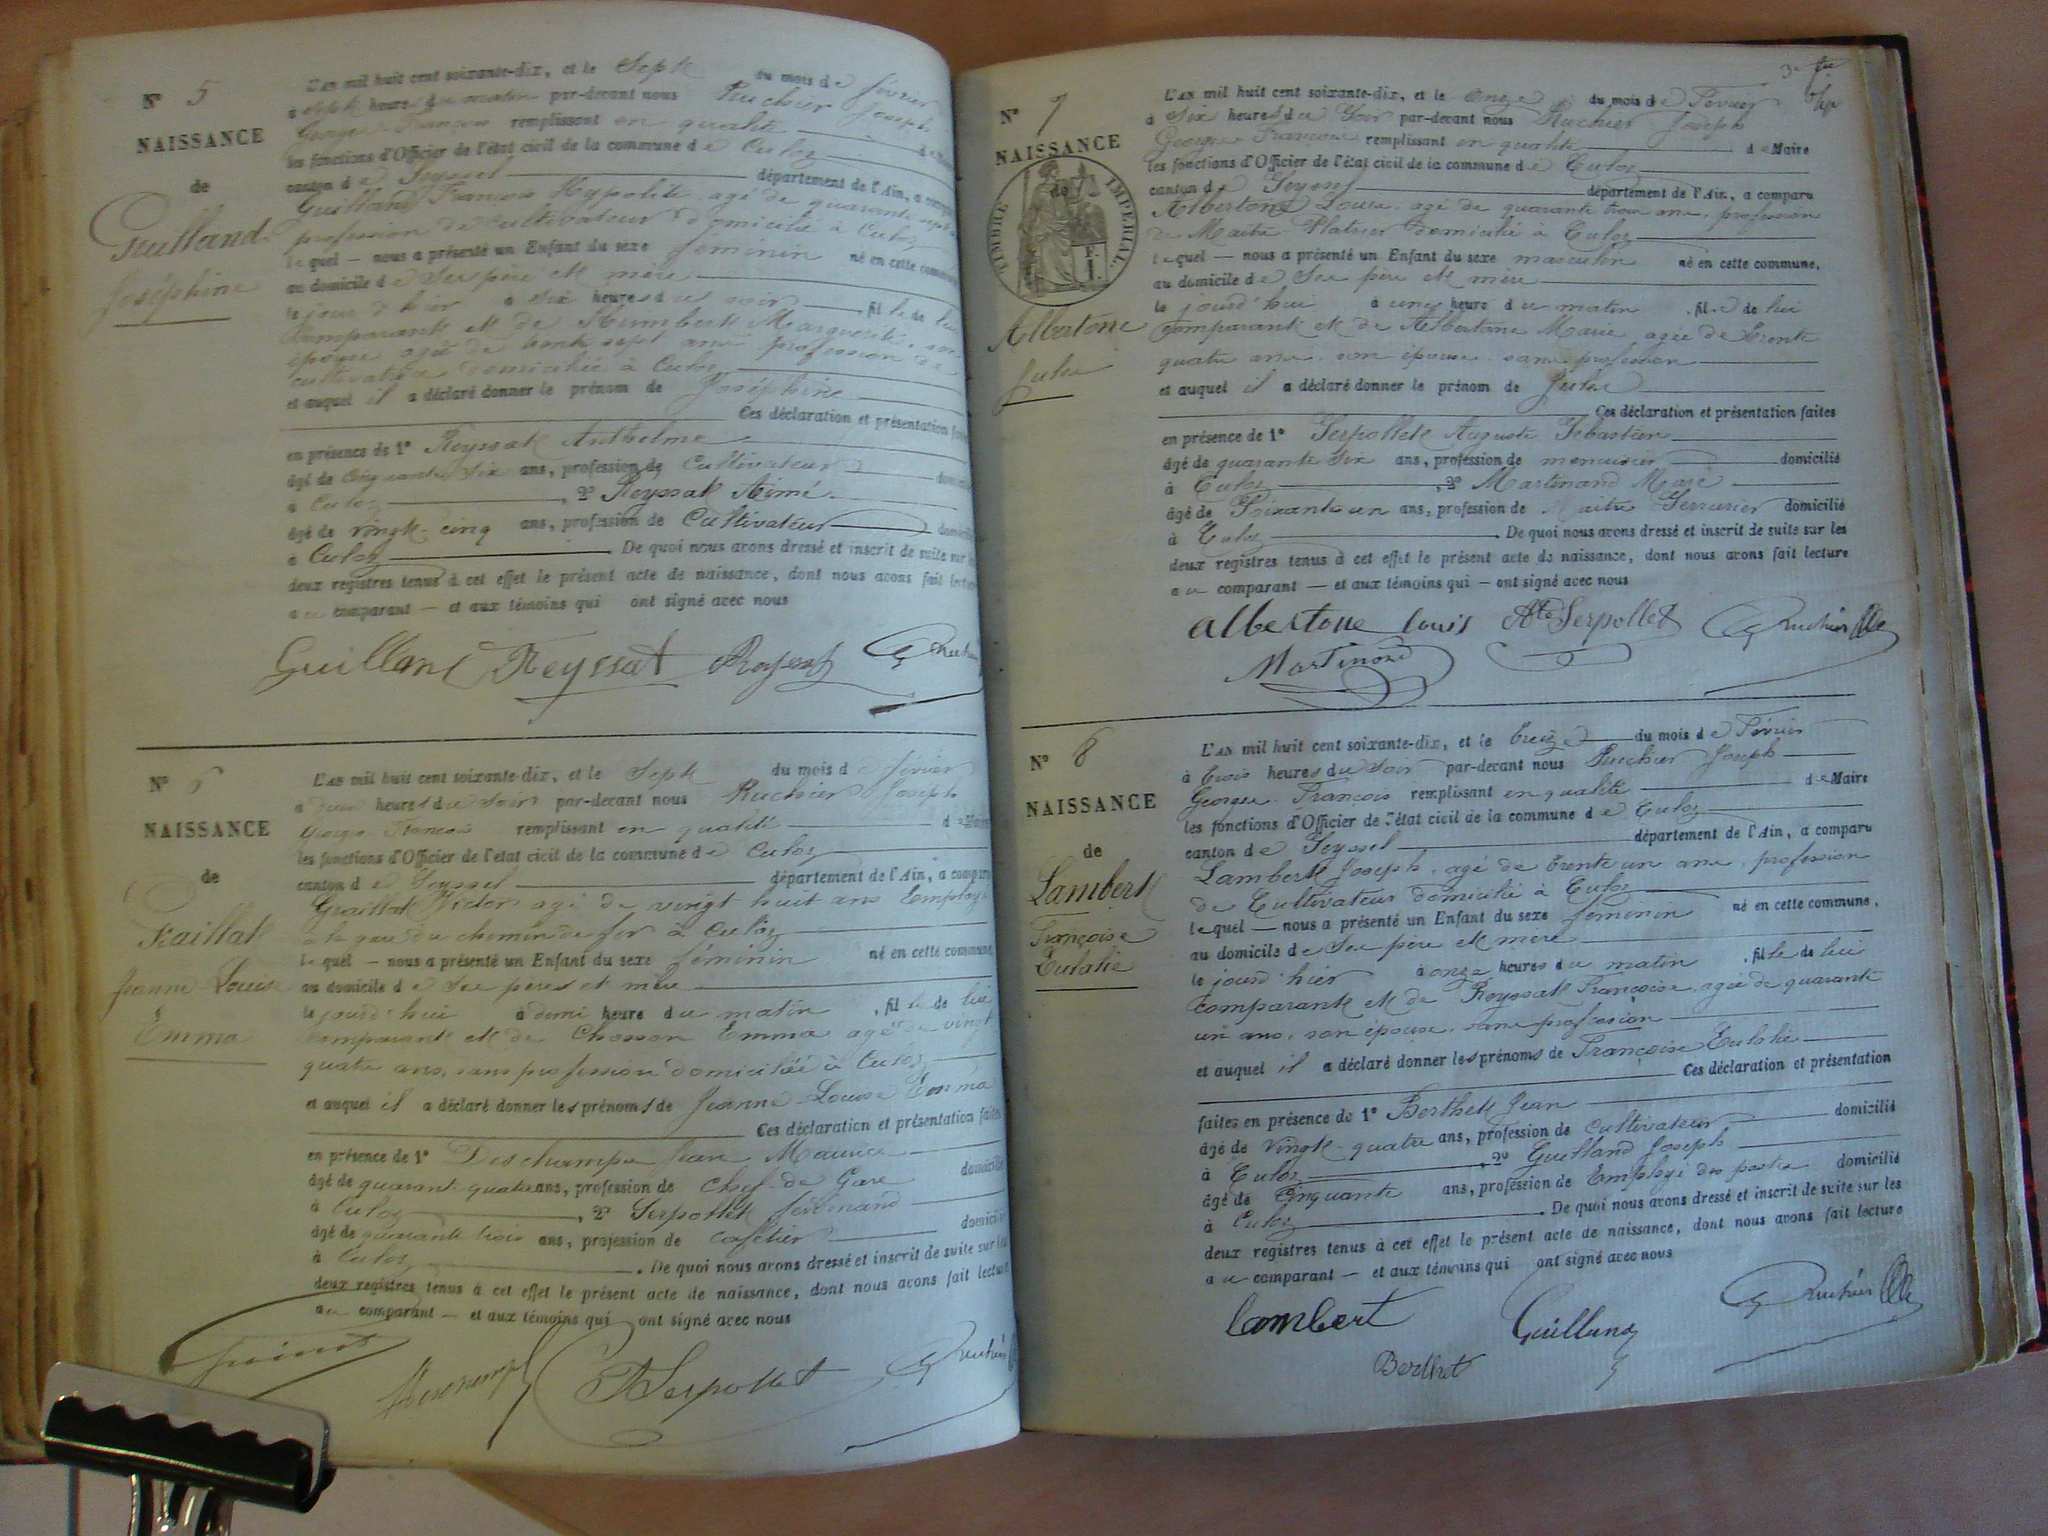 N° 5
NAISSANCE
de
Guilland
Joséphine
L'AN mil huit cent soixante-dix, et le Sept du mois de février
à sept heures du matin par-devant nous Ruchier Joseph
Georges François remplissant en qualité
les fonctions d'Officier de l'état civil de la commune de Culoz
canton de Seyssel département de l'Ain, a comparu
Guilland François Hypolite agé de quarante sept
profession de Cultivateur domicilié à Culoz
lequel — nous a présenté un Enfant du sexe féminin né en cette commune
au domicile de Ses père et mère
le jour d'hier à six heures du soir, fille de lui
comparant et de Humbert Marguerite son
épouse agée de trente sept ans profession de
cultivatrice domiciliée à Culoz
et auquel il a déclaré donner le prénom de Joséphine
Ces déclaration et présentation faites
en présence de 1° Reyssat Anthelme
âgé de cinquante six ans, profession de Cultivateur domicilié
à Culoz, 2° Reyssat Aimé
âgé de vingt-cinq ans, profession de Cultivateur domicilié
à Culoz. De quoi nous avons dressé et inscrit de suite sur les
deux registres tenus à cet effet le présent acte de naissance, dont nous avons fait lecture
au comparant — et aux témoins qui ont signé avec nous
Guilland Reyssat Reyssat Ruchier
N° 6
NAISSANCE
de
Fraillat
Jeanne Louise
Emma
L'AN mil huit cent soixante-dix, et le Sept du mois de février
à heures du soir par-devant nous Ruchier Joseph
Georges François remplissant en qualité de Maire
les fonctions d'Officier de l'état civil de la commune de Culoz
canton de Seyssel département de l'Ain, a comparu
Victor agé de vingt huit ans Employé
à la gare du chemin de fer à Culoz
lequel — nous a présenté un Enfant du sexe féminin né en cette commune
au domicile de Ses père et mère
le jourd'hui à demi heure du matin, fille de lui
comparant et de Chosson Emma agée de vingt
quatre ans, sans profession domiciliée à Culoz
et auquel il a déclaré donner les prénoms de Jeanne Louise Emma
Ces déclaration et présentation faites
en présence de 1° Deschamps Jean Maurice
âgé de quarant-quatre ans, profession de Chef de Gare domicilié
à Culoz, 2° Serpollet ferdinand
âgé de quarante trois ans, profession de Cafetier domicilié
à Culoz. De quoi nous avons dressé et inscrit de suite sur les
deux registres tenus à cet effet le présent acte de naissance, dont nous avons fait lecture
au comparant — et aux témoins qui ont signé avec nous
Deschamps Serpollet Ruchier
N° 7
NAISSANCE
de
TIMBRE IMPERIAL
1 F.
Albertone
Jules
L'AN mil huit cent soixante-dix, et le onze du mois de Février
à Six heures du Soir par-devant nous Ruchier Joseph
Georges François remplissant en qualité de Maire
les fonctions d'Officier de l'état civil de la commune de Culoz
canton de Seyssel département de l'Ain, a comparu
Albertone Louis agé de quarante trois ans, profession
de Maitre Platrier domicilié à Culoz
lequel — nous a présenté un Enfant du sexe masculin né en cette commune,
au domicile de Ses père et mère
le jourd'hui à une heure du matin, fils de lui
comparant et de Albertone Marie agée de trente
quatre ans, son épouse, sans profession
et auquel il a déclaré donner le prénom de Jules
Ces déclaration et présentation faites
en présence de 1° Serpollet Auguste Sébastien
âgé de quarante six ans, profession de menuisier domicilié
à Culoz, 2° Martinand Marc
âgé de Soixante un ans, profession de Maitre Serrurier domicilié
à Culoz. De quoi nous avons dressé et inscrit de suite sur les
deux registres tenus à cet effet le présent acte de naissance, dont nous avons fait lecture
au comparant — et aux témoins qui — ont signé avec nous
albertone louis Ate Serpollet Ruchier
Martinand
N° 8
NAISSANCE
de
Lambert
Françoise
Eulalie
L'AN mil huit cent soixante-dix, et le treize du mois de Février
à trois heures du Soir par-devant nous Ruchier Joseph
Georges François remplissant en qualité de Maire
les fonctions d'Officier de l'état civil de la commune de Culoz
canton de Seyssel département de l'Ain, a comparu
Lambert Joseph, agé de trente un ans, profession
de Cultivateur domicilié à Culoz
lequel — nous a présenté un Enfant du sexe féminin né en cette commune,
au domicile de Ses père et mère
le jourd'hier à onze heures du matin, fille de lui
comparant et de Reyssat Françoise agée de quarante
un ans, son épouse, sans profession
et auquel il a déclaré donner les prénoms de Françoise Eulalie
Ces déclaration et présentation
faites en présence de 1° Berthet Jean
âgé de vingt-quatre ans, profession de Cultivateur domicilié
à Culoz, 2° Guilland Joseph
âgé de Cinquante ans, profession de Employé des postes domicilié
à Culoz. De quoi nous avons dressé et inscrit de suite sur les
deux registres tenus à cet effet le présent acte de naissance, dont nous avons fait lecture
au comparant — et aux témoins qui ont signé avec nous
lambert Guilland Ruchier
Berthet